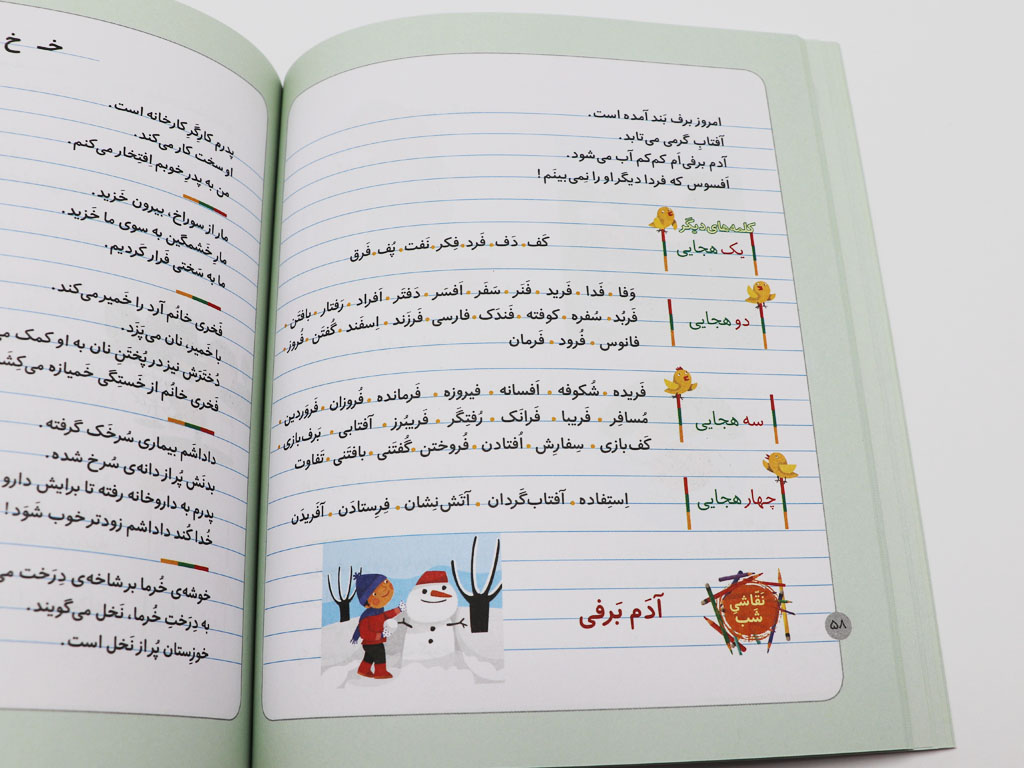 امروز برف بَند آمده است.
آفتابِ گرمی می‌تابد.
آدم برفی‌اَم کم‌کم آب می‌شود.
اَفسوس که فردا دیگر او را نِمی‌بینَم!
کلمه‌های دیگَر
یک هجایی
کَف • دَف • فَرد • فِکر • نَفت • پُف • فَرق
دو هجایی
وَفا • فَدا • فَرید • فَنَر • سَفَر • اَفسَر • دَفتَر • اَفراد • رَفتار • بافتَن
فَربُد • سُفره • کوفته • فَندَک • فارسی • فَرزَند • اِسفَند • گُفتَن • فُروز
فانوس • فُرود • فَرمان
سه هجایی
فَریده • شُکوفه • اَفسانه • فیروزه • فَرمانده • فُروزان • فَروَردین
مُسافِر • فَریبا • فَرانَک • رُفتِگَر • فَریبُرز • آفتابی • بَرف‌بازی
کَف‌بازی • سِفارِش • اُفتادن • فُروختَن • گُفتَنی • بافتَنی • تَفاوت
چهار هجایی
اِستِفاده • آفتاب‌گَردان • آتَش‌نِشان • فِرِستادَن • آفَریدَن
نَقّاشیِ
شَب
آدَم بَرفی
۵۸
خـ خ
پدرم کارگَرِ کارخانه است.
او سَخت کار می‌کند.
من به پدرِ خوبم اِفتِخار می‌کنم.
مار از سوراخ، بیرون خَزید.
مارِ خَشمگین به سوی ما خَزید.
ما به سَختی فَرار کَردیم.
فَخری خانُم آرد را خَمیر می‌کند.
با خَمیر، نان می‌پَزَد.
دُختَرَش نیز در پُختَنِ نان به او کمک
فَخری خانُم از خَستِگی خَمیازه
داداشَم بیماری سُرخَک گرفته.
بدنَش پُر از دانه‌ی سُرخ شده.
پدرم به داروخانه رفته تا برایش دارو
خُدا کُند داداشم زودتر خوب شَوَد!
خوشه‌ی خُرما بر شاخه‌ی دِرَخت
به دِرَختِ خُرما، نَخل می‌گویند.
خوزِستان پُر از نَخل است.